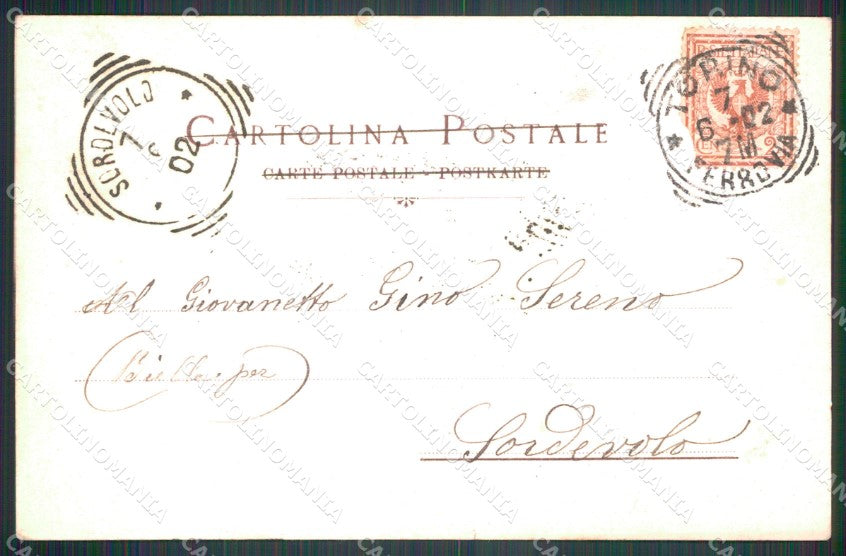 CARTOLINA POSTALE
CARTE POSTALE - POSTKARTE
SORDEVOLO
7
02
TORINO
7
6 - 02
7M
FERROVIA
Al Giovanetto Gino Sereno
(Biella per
Sordevolo
CARTOLINOMANIA